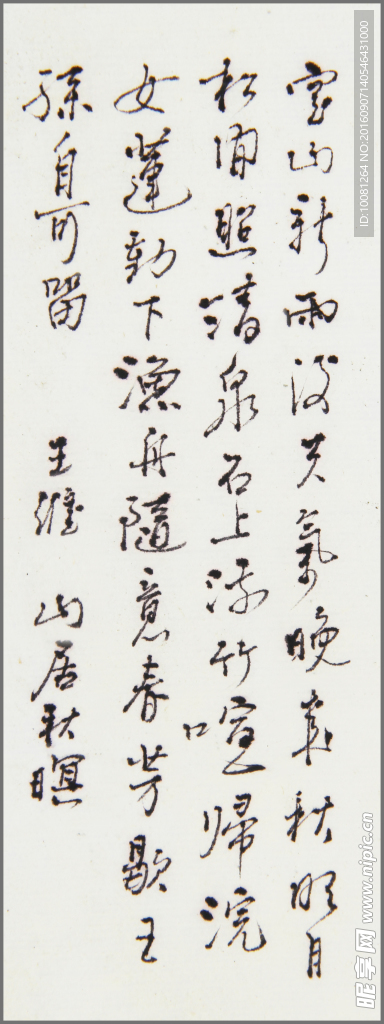 空山新雨後天氣晚來秋明月
松間照清泉石上流竹喧歸浣
女蓮動下漁舟隨意春芳歇王
孫自可留
王維 山居秋暝
ID:10081264 NO:20160907140546431000
昵享网 www.nipic.cn